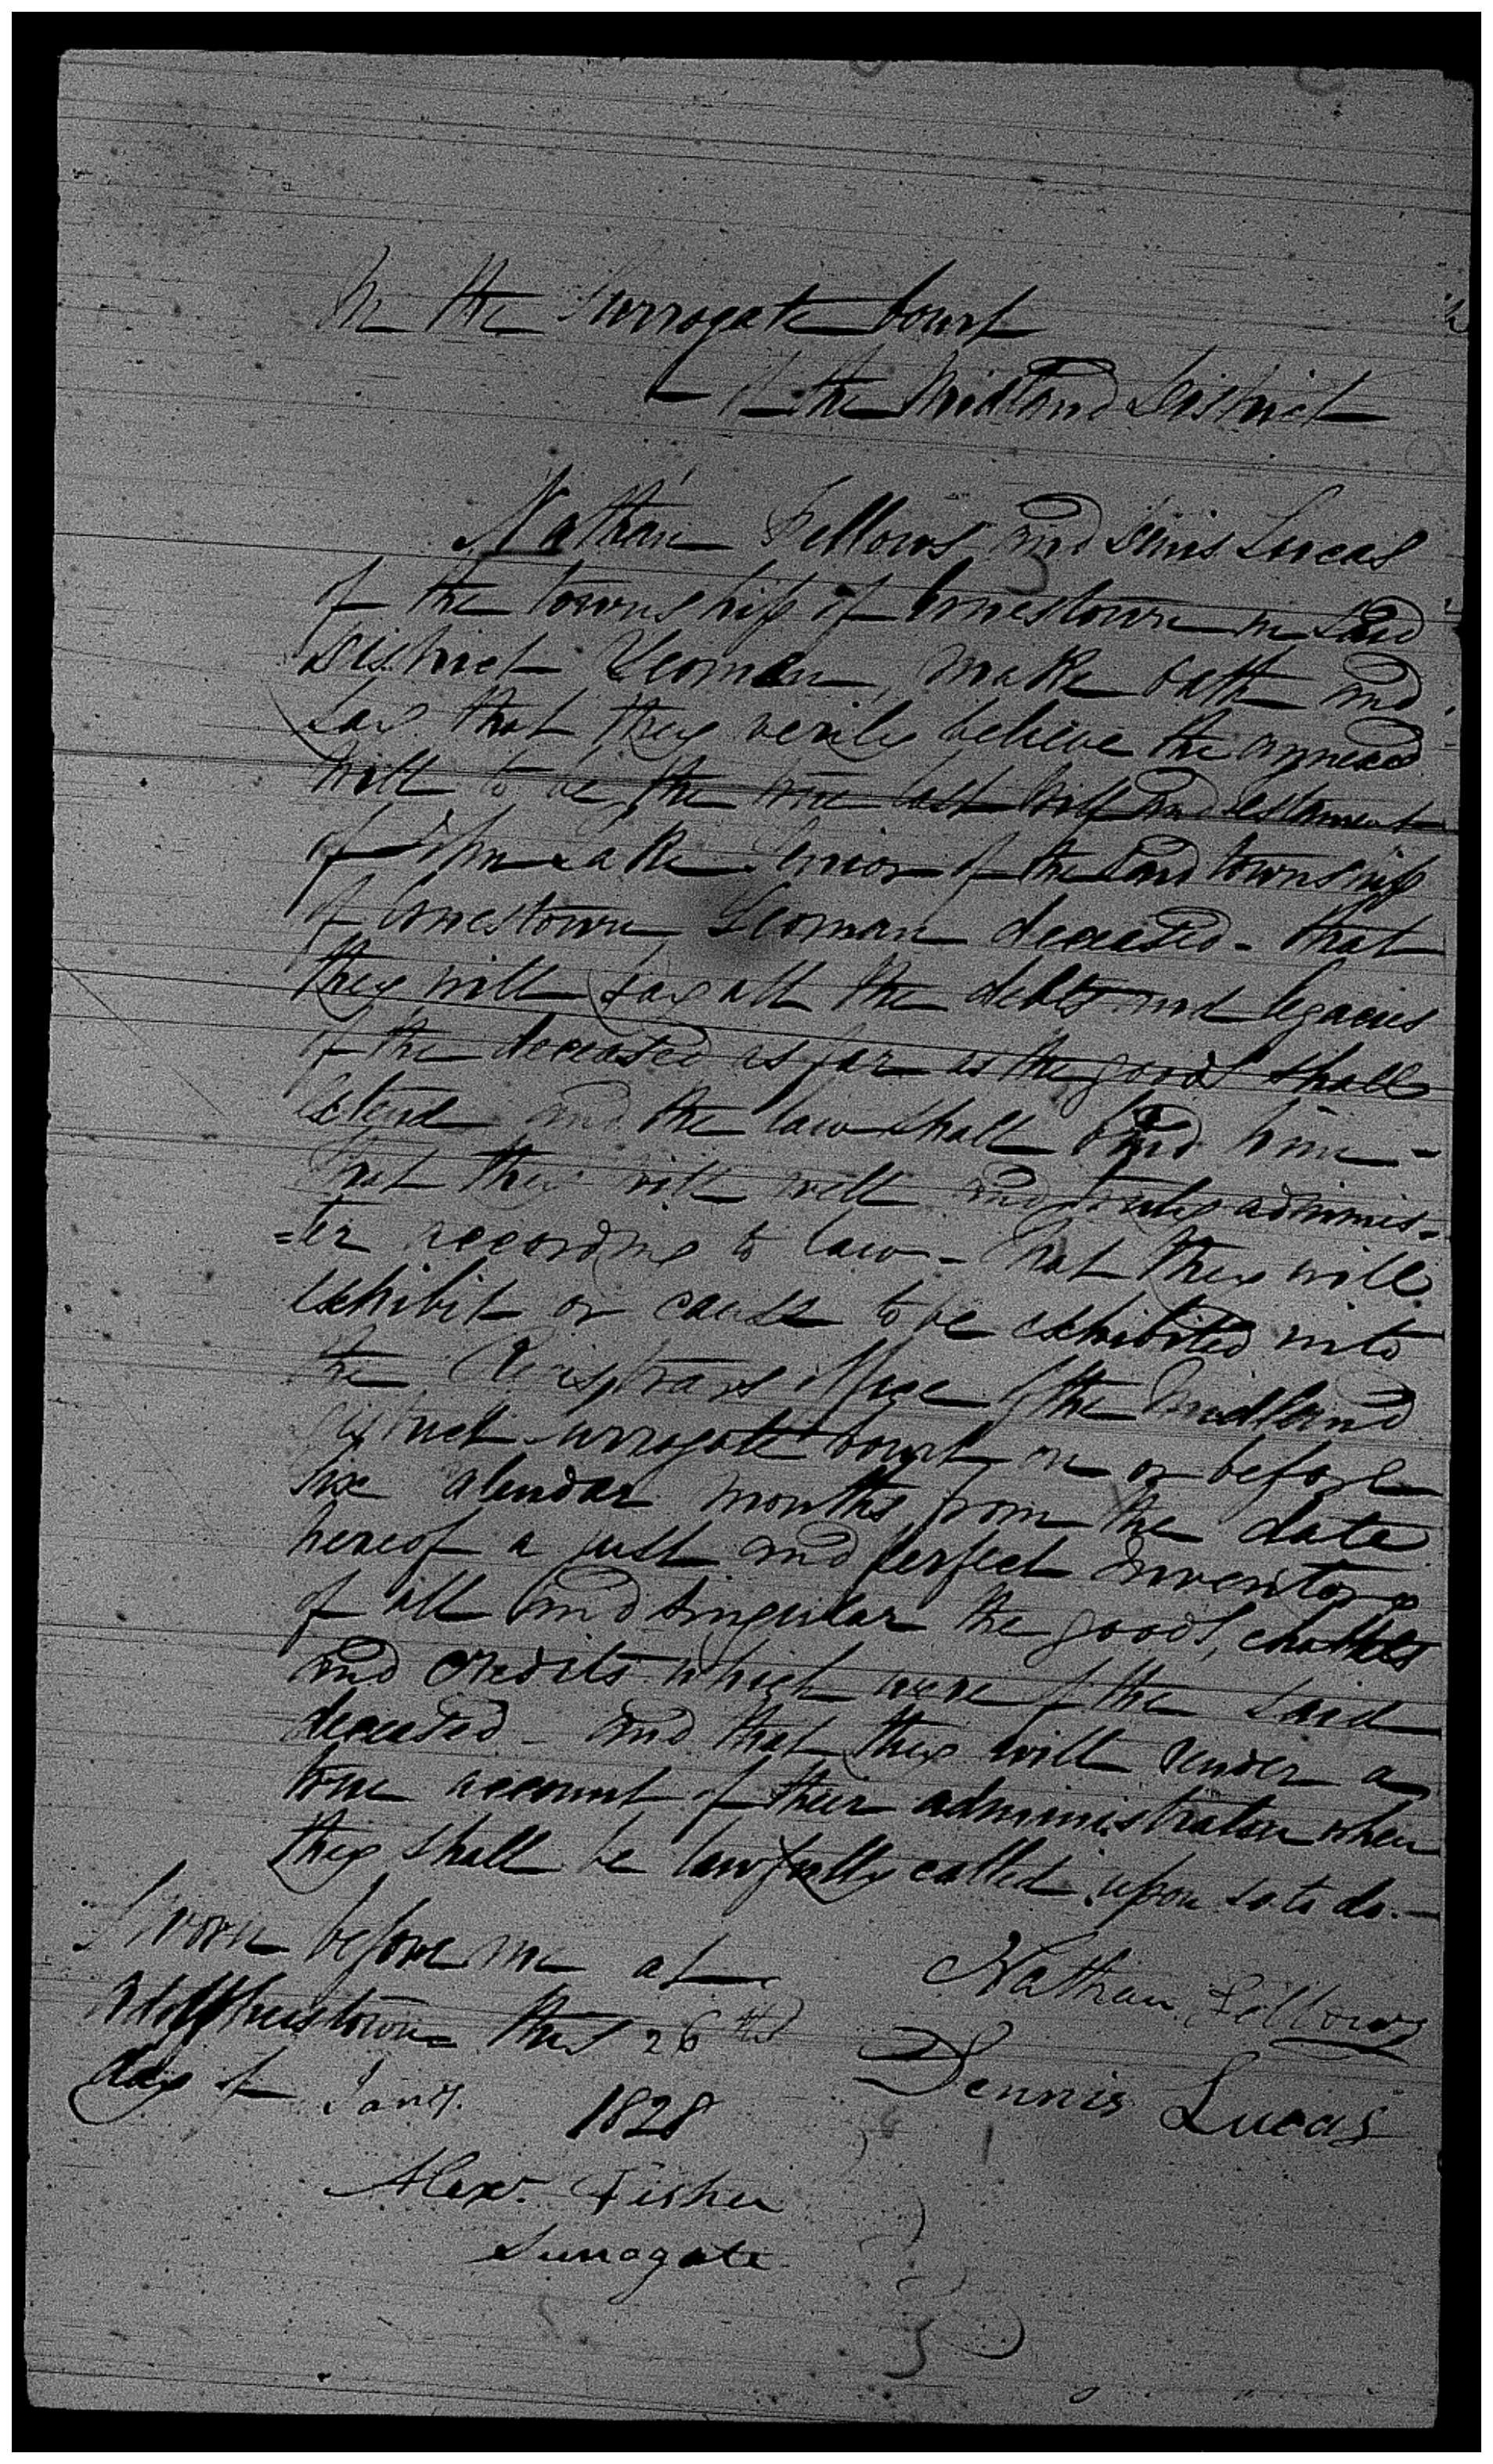 In the Surrogate Court
of the Midland District
Nathan Fellows and Denis Lucas
of the township of Ernestown in said
District Yeoman, make oath and
say that they verily believe the annexed
Will to be the true last Will and testament
of John Lake Senior of the said township
of Ernestown Yeoman deceased - that
they will pay all the debts and legacies
of the deceased as far as the goods shall
extend and the law shall bind him -
that they will well and truly adminis-
=ter according to law - that they will
exhibit or cause to be exhibited into
the Registrars office of the Midland
District Surrogate Court on or before
six calendar months from the date
hereof a just and perfect Inventory
of all and singular the goods, chattels
and credits which were of the said
deceased - and that they will render a
true account of their administration when
they shall be lawfully called upon so to do. -
Sworn before me at
Adolphustown this 26th
day of Jany. 1828
Nathan Fellows
Dennis Lucas
Alexr. Fisher
Surrogate